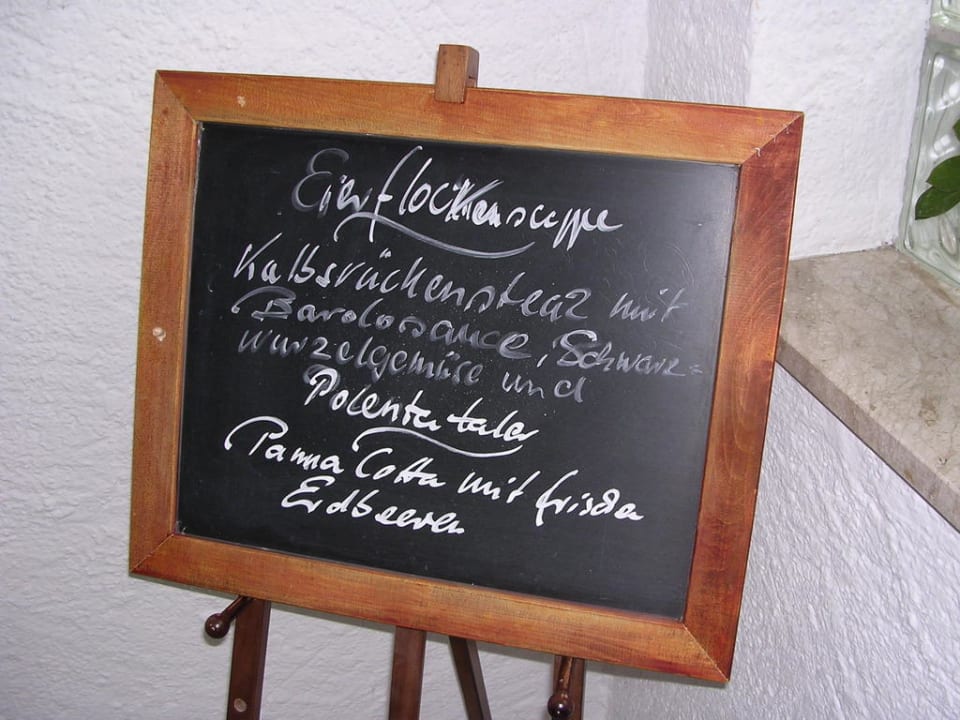 Eierflockensuppe
Kalbsrückensteak mit
Barolosauce, Schwarz=
wurzelgemüse und
Polentataler
Panna Cotta mit frischen
Erdbeeren